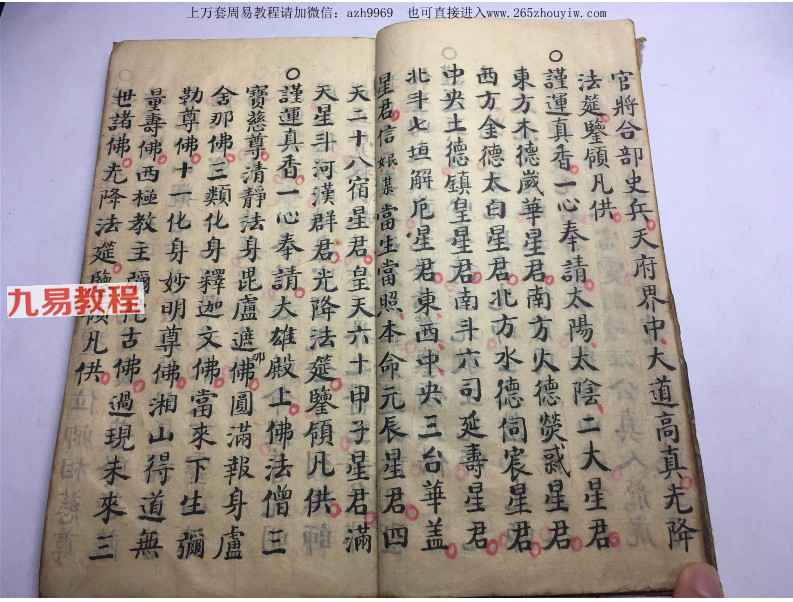 上万套周易教程请加微信：azh9969 也可直接进入www.265zhouyiw.com
官將合部史兵天府界中大道高真光降
法筵鑒領凡供
○謹運真香一心奉請太陽太陰二大星君
東方木德歲華星君南方火德熒惑星君
西方金德太白星君北方水德伺宸星君
中央土德鎮皇星君南斗六司延壽星君
北斗七垣解厄星君東西中央三台華盖
星君信氓某當生當照本命元辰星君四
天二十八宿星君皇天六十甲子星君滿
天星斗河漢群君光降法筵鑒領凡供
○謹運真香一心奉請大雄殿上佛法僧三
寶慈尊清靜法身毘盧遮那佛圓滿報身盧
舍那佛三類化身釋迦文佛當來下生彌
勒尊佛十一化身妙明尊佛湘山得道無
量壽佛西極教主彌陀古佛過現未來三
世諸佛光降法筵鑒領凡供
九易教程